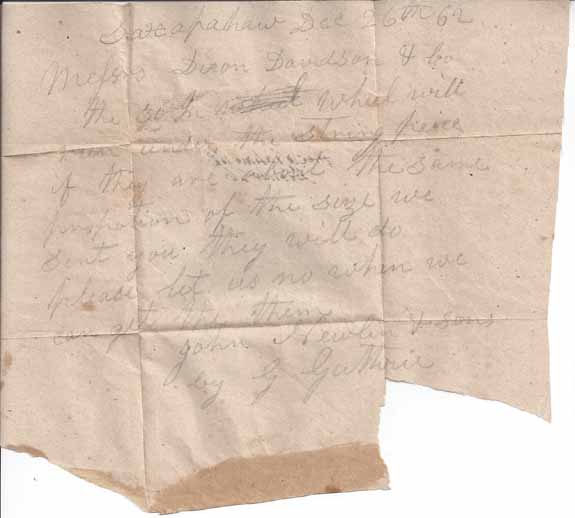 Saxapahaw Dec 26th 62
Messrs Dixon Davidson & Co
the 30 In wheel will
run under the string piece
if they are the same
propotion of the size we
sent you they will do
please let us no when we
can get them
John Newlin & sons
by G Guthrie